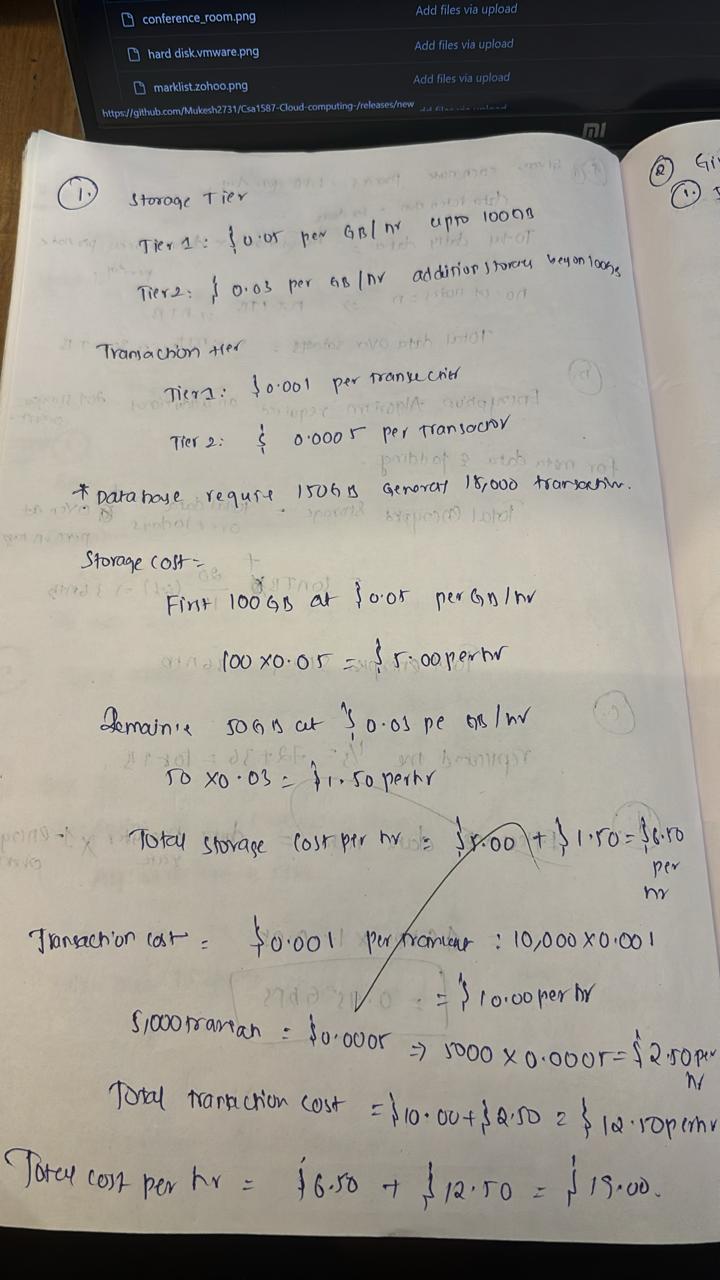 conference_room.png Add files via upload
hard disk.vmware.png Add files via upload
marklist.zoho.png Add files via upload
https://github.com/Mukesh2731/Csa1587-Cloud-computing-/releases/new
mi
1. Storage Tier
Tier 1: $ 0.05 per GB/hr upto 100GB
Tier 2: $ 0.03 per GB/hr addition storag beyon 100GB
Transaction tier
Tier 1: $0.001 per transection
Tier 2: $ 0.0005 per Transaction
* Database require 150GB General 15,000 transaction.
Storage cost =
First 100GB at $0.05 per GB/hr
100 x 0.05 = $5.00 per hr
Remainie 50GB at $0.03 pe GB/hr
50 x 0.03 = $1.50 per hr
Total storage cost per hr = $5.00 + $1.50 = $6.50
per
hr
Transaction cost = $0.001 per : 10,000 x 0.001
= $10.00 per hr
5,000 = $0.0005 => 5000 x 0.0005 = $2.50 per
hr
Total tranaction cost = $10.00 + $2.50 = $12.50 per hr
Total cost per hr = $6.50 + $12.50 = $19.00.
2
1.